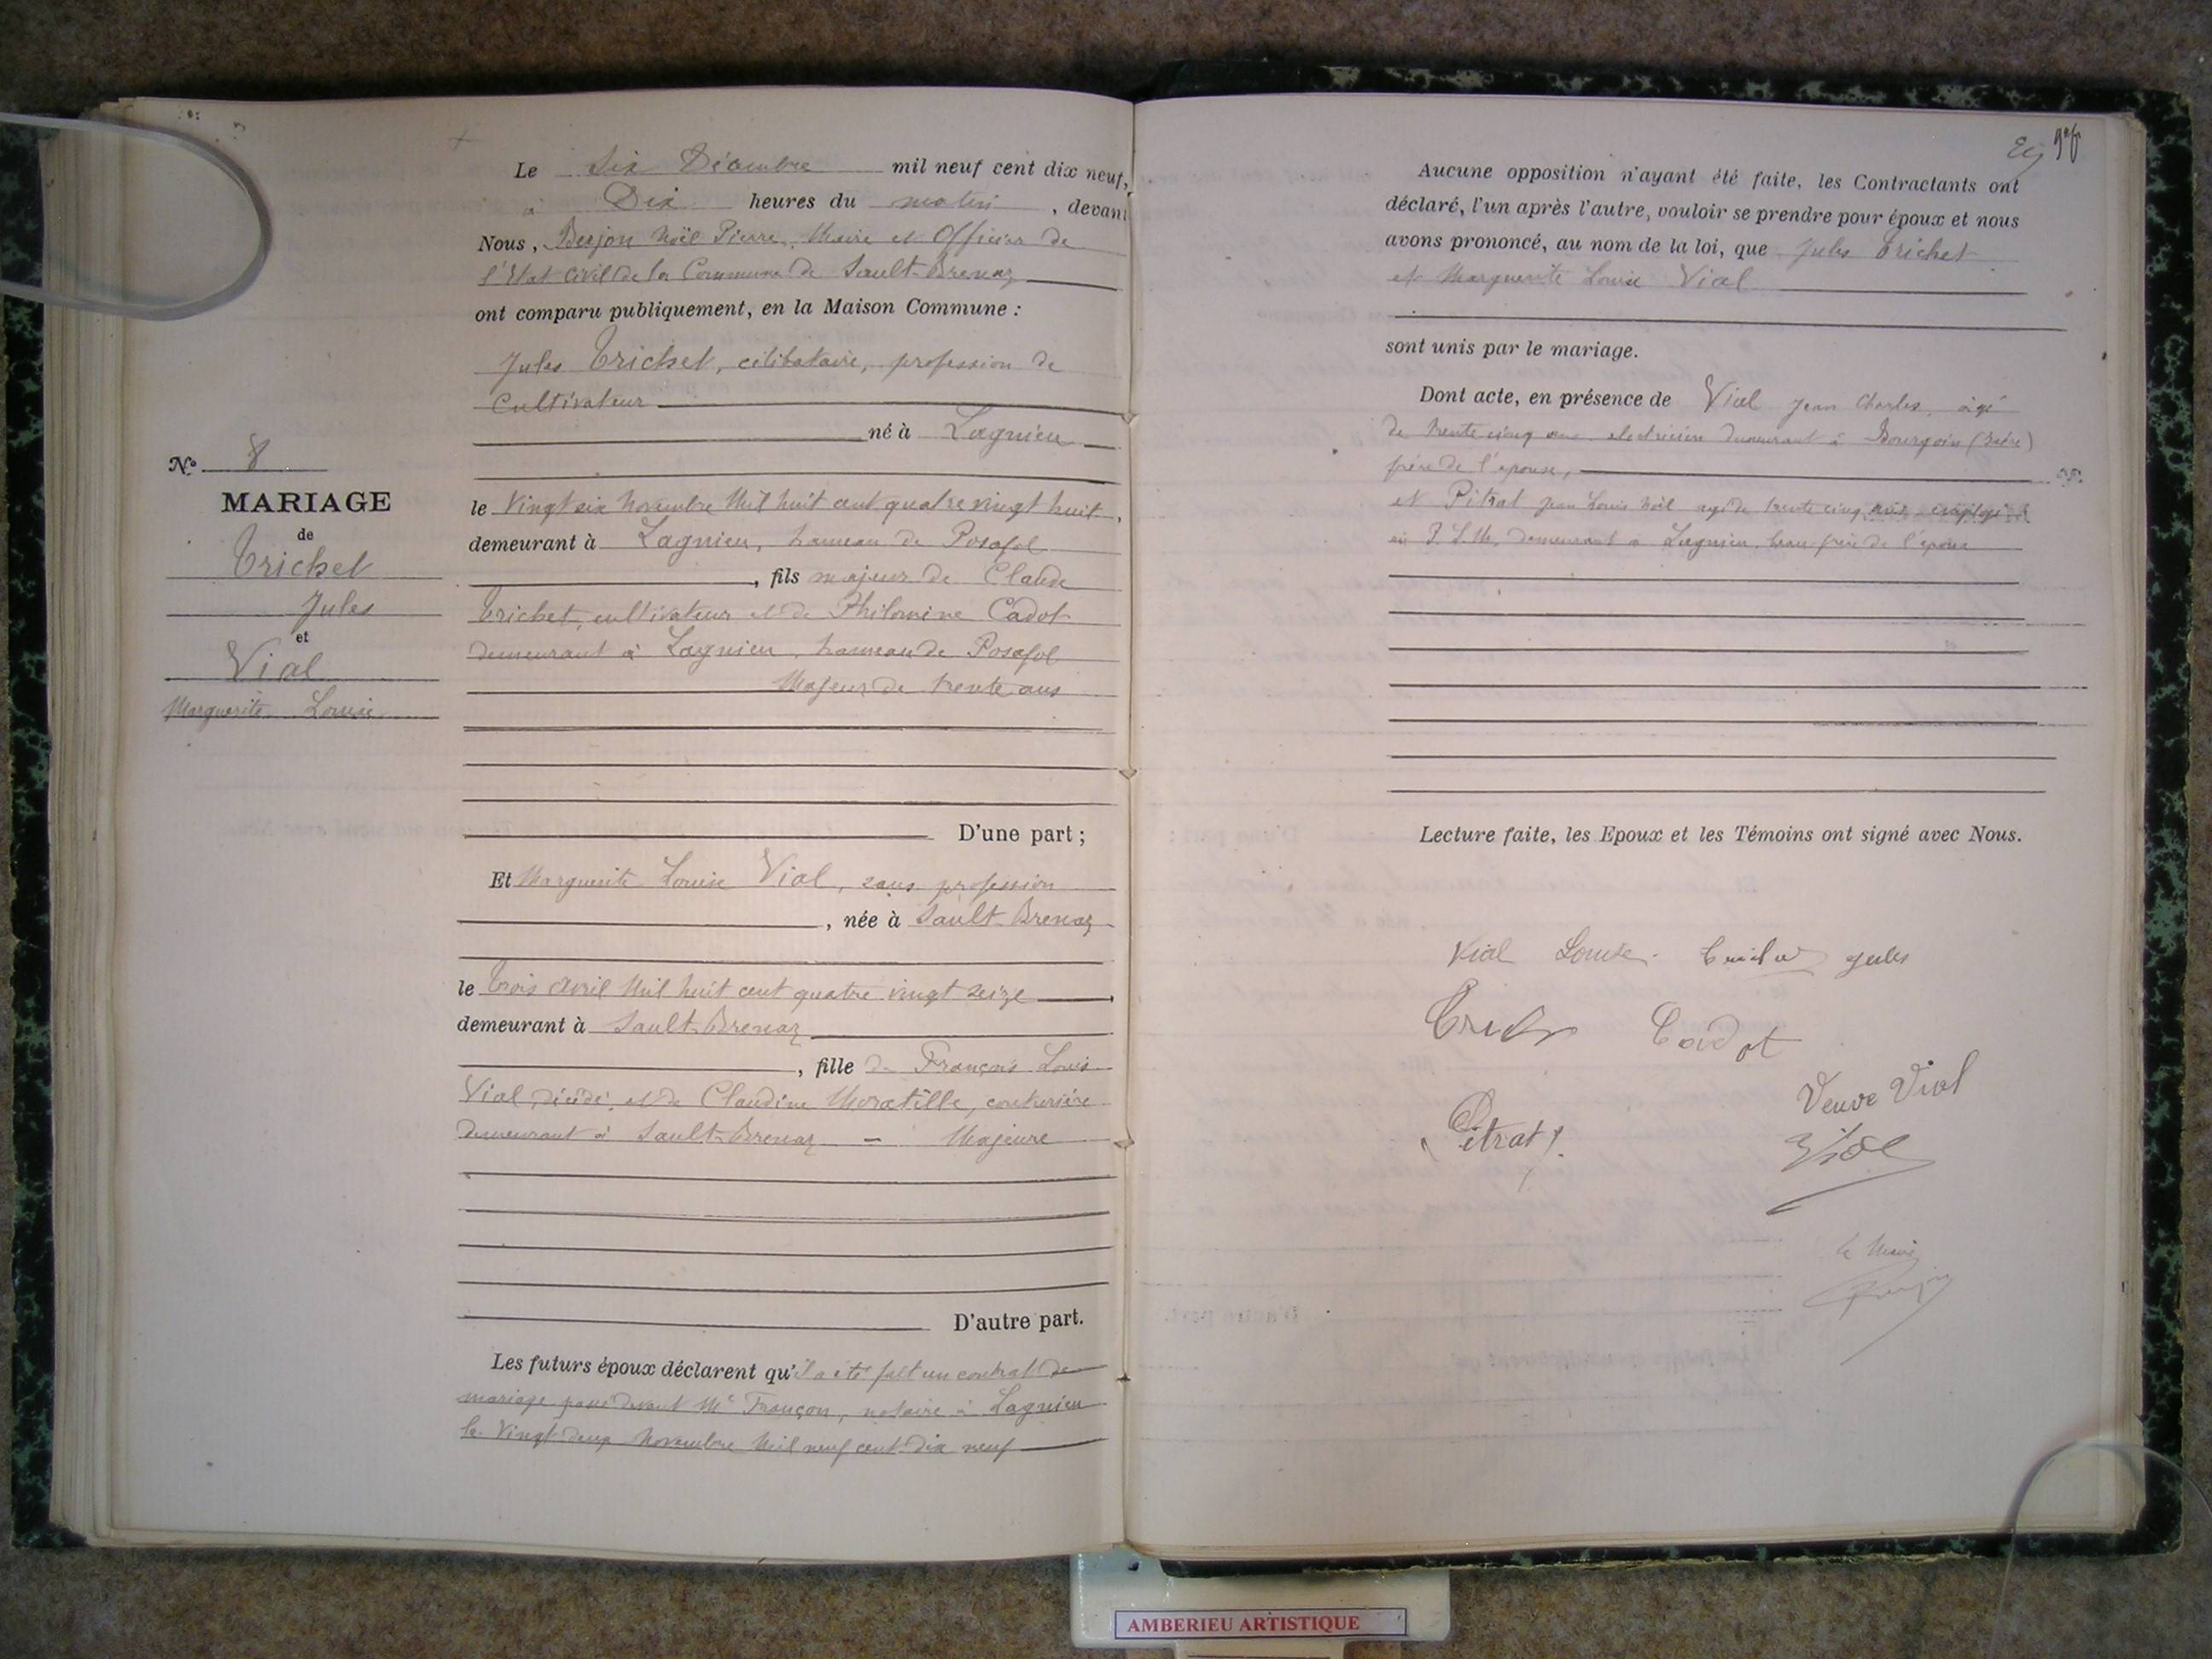 Le Six Décembre mil neuf cent dix neuf,
à Dix heures du matin, devant
Nous, Berjon Noël Pierre, Maire et Officier de
l'Etat Civil de la Commune de Sault-Brenaz
ont comparu publiquement, en la Maison Commune :
Jules Trichet, célibataire, profession de
Cultivateur
né à Lagnieu
le Vingt six Novembre Mil huit cent quatre vingt huit,
demeurant à Lagnieu, hameau de Posafol
, fils majeur de Claude
Trichet, cultivateur et de Philomine Cadot
demeurant à Lagnieu, hameau de Posafol
Majeur de trente ans
D'une part ;
Et Marguerite Louise Vial, sans profession
, née à Sault-Brenaz
le trois Avril Mil huit cent quatre vingt seize,
demeurant à Sault-Brenaz
, fille de François Louis
Vial, décédé, et de Claudine Moratille, couturière
demeurant à Sault-Brenaz - Majeure
D'autre part.
Les futurs époux déclarent qu'il a été fait un contrat de
mariage passé devant Me Françon, notaire à Lagnieu
le Vingt deux Novembre Mil neuf cent dix neuf
No 8
MARIAGE
de
Trichet
Jules
et
Vial
Marguerite Louise
Aucune opposition n'ayant été faite, les Contractants ont
déclaré, l'un après l'autre, vouloir se prendre pour époux et nous
avons prononcé, au nom de la loi, que Jules Trichet
et Marguerite Louise Vial
sont unis par le mariage.
Dont acte, en présence de Vial Jean Charles, âgé
de trente cinq ans, electricien demeurant à Bourgoin (Isère)
frère de l'épouse,
et Pitrat Jean Louis Noël agé de trente cinq ans employé
au P. L. M. demeurant à Lagnieu, beau frère de l'époux
Lecture faite, les Epoux et les Témoins ont signé avec Nous.
Vial Louise. Trichet Jules
Cadot
Veuve Vial
Pitrat
Vial
le Maire
AMBERIEU ARTISTIQUE